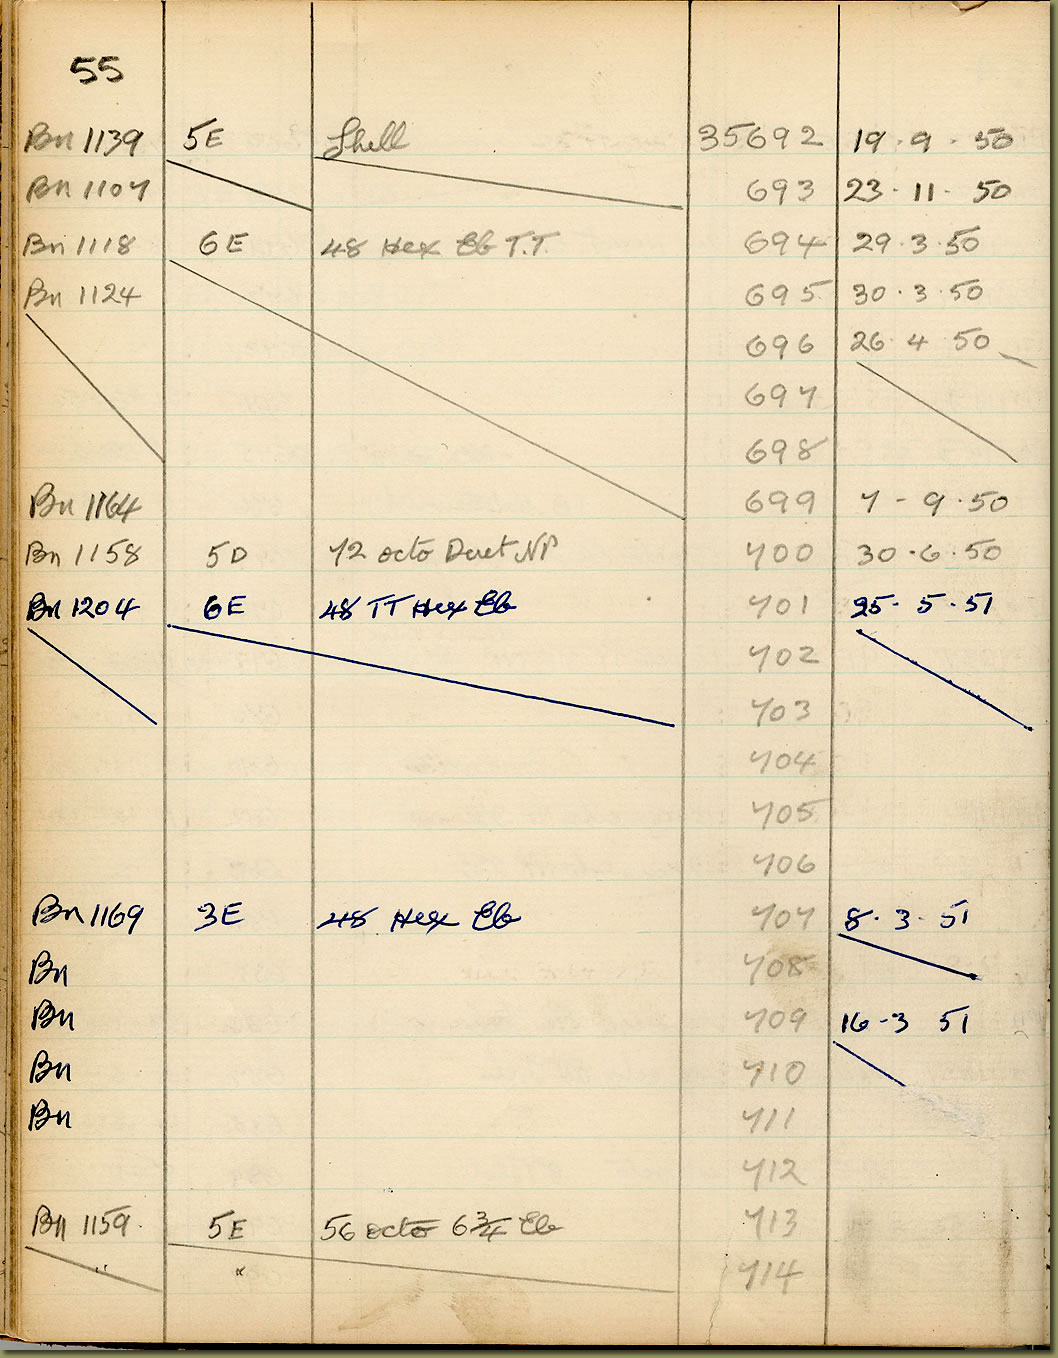 55
Bn 1139 5E Shell 35692 19 · 9 · 50
Bn 1107 693 23 · 11 · 50
Bn 1118 6E 48 Hex Eb T.T. 694 29 · 3 · 50
Bn 1124 695 30 · 3 · 50
696 26 · 4 · 50
697
698
Bn 1164 699 7 - 9 · 50
Bn 1158 5D 72 octo Duet NP 700 30 · 6 · 50
Bn 1204 6E 48 TT Hex Eb 701 25 · 5 · 51
702
703
704
705
706
Bn 1169 3E 48 Hex Eb 707 8 · 3 · 51
Bn 708
Bn 709 16 - 3 51
Bn 710
Bn 711
712
Bn 1159 5E 56 octo 6 3/4 Eb 713
" " 714